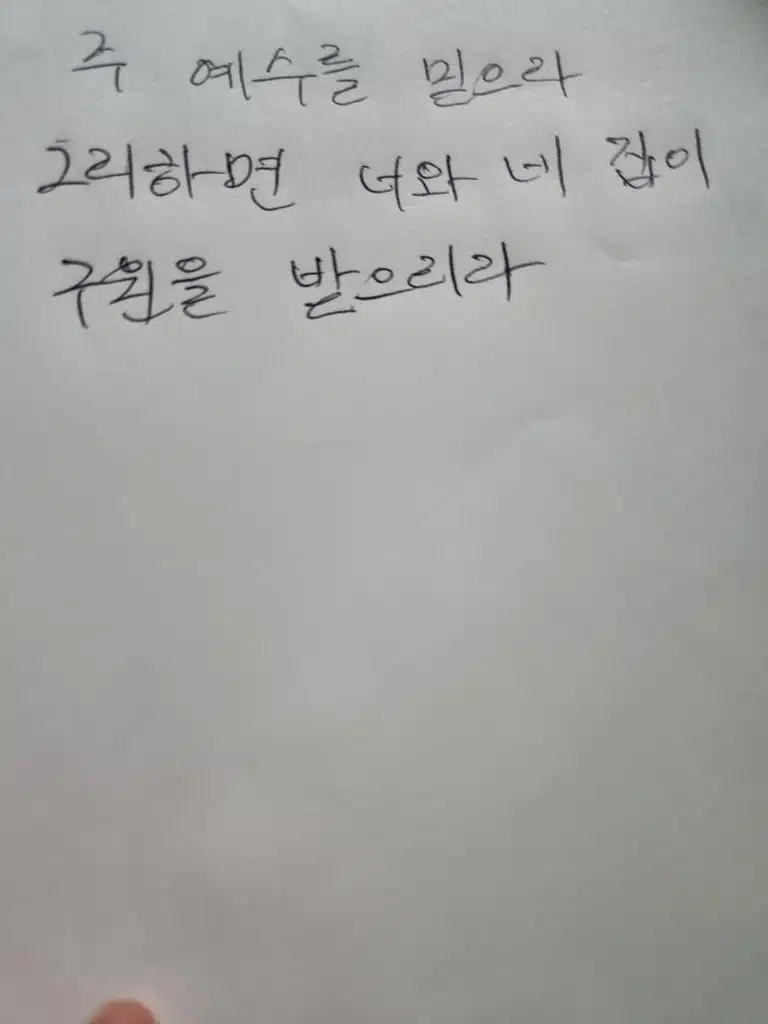 주 예수를 믿으라
그리하면 너와 네 집이
구원을 받으리라